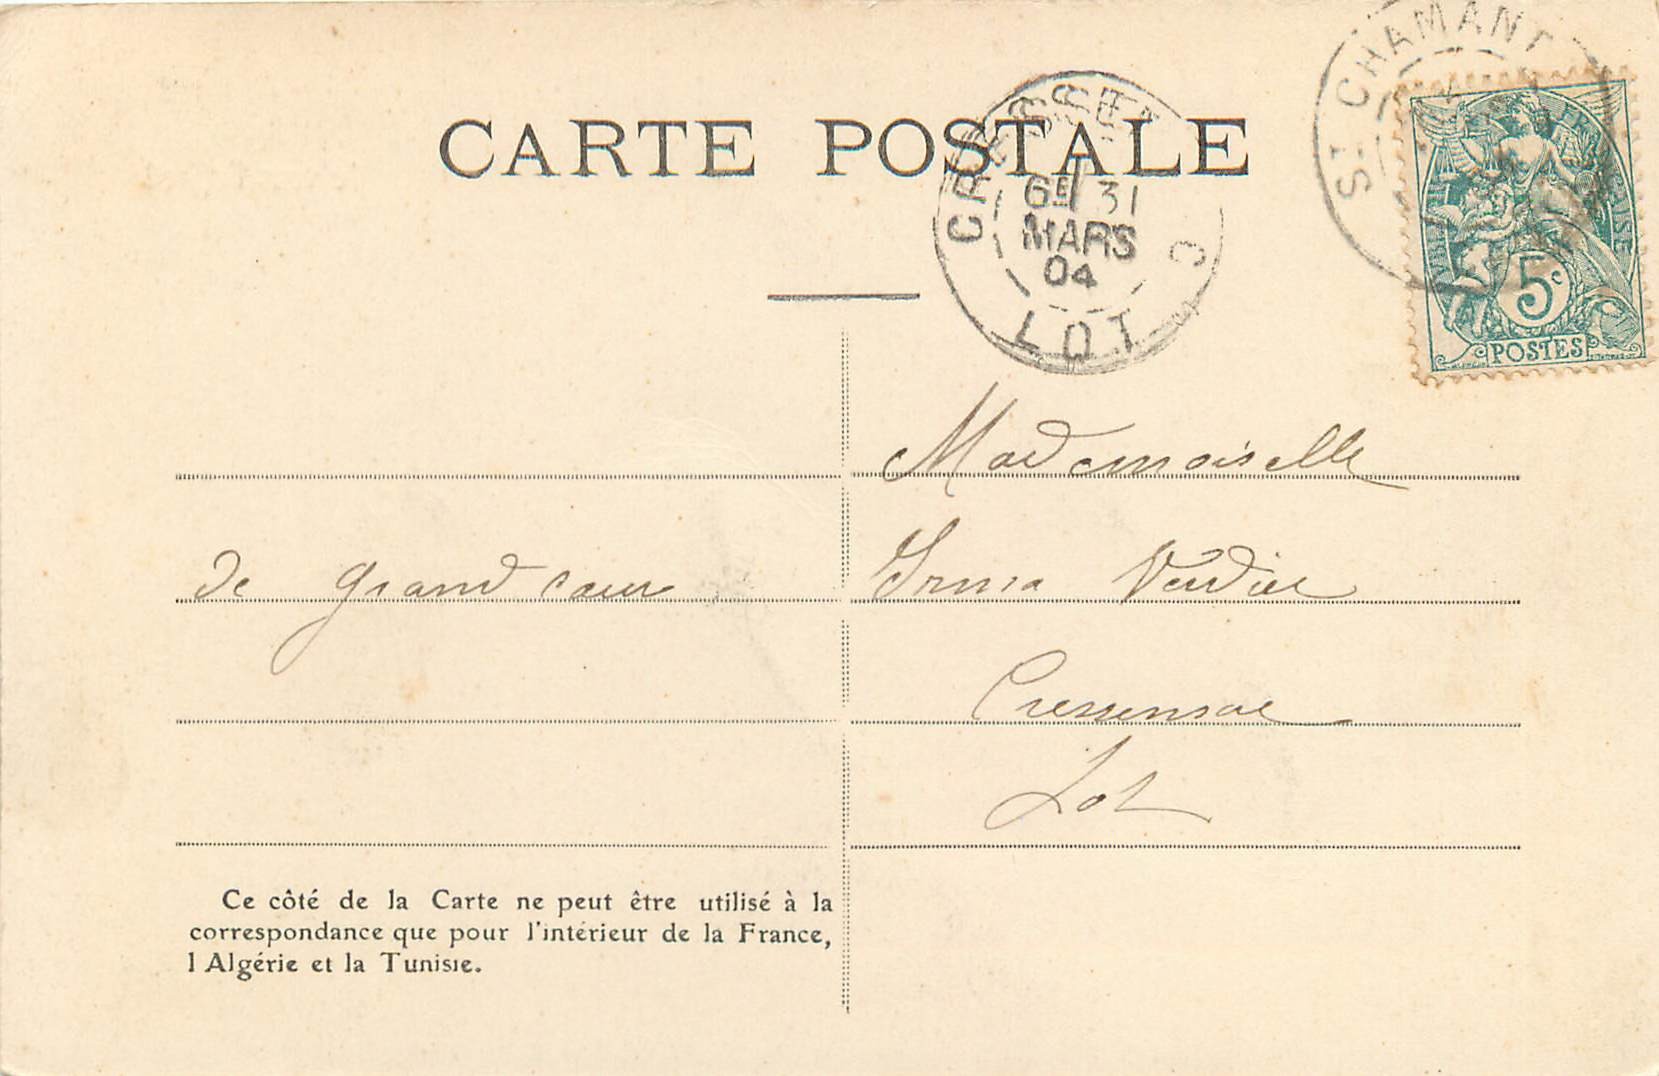 CARTE POSTALE
ST CHAMANT
CRESSE C
6E 31
MARS
04
LOT
5c
POSTES
Mademoiselle
de grand cœur
Irma Verdier
Cressensac
Lot
Ce côté de la Carte ne peut être utilisé à la
correspondance que pour l'intérieur de la France,
l Algérie et la Tunisie.